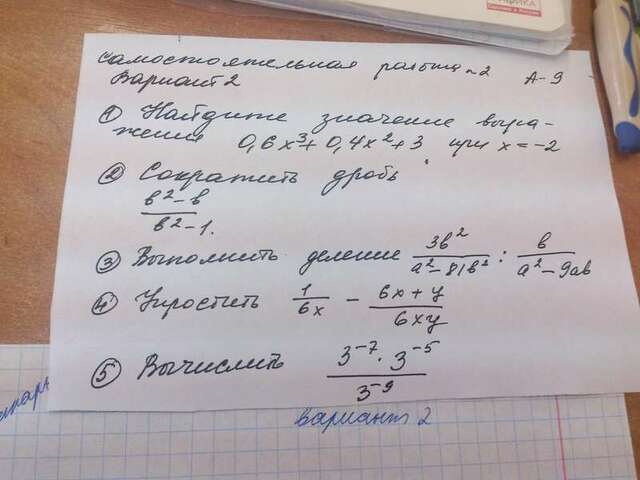 Самостоятельная работа №2 А-9
Вариант 2
① Найдите значение выра-
жения 0,6x³+0,4x²+3 при x=-2
② Сократить дробь
(в²-в)/(в²-1).
③ Выполнить деление 3в²/(а²-81в²) : в/(а²-9ав)
④ Упростить 1/(6x) - (6x+y)/(6xy)
⑤ Вычислить (3⁻⁷·3⁻⁵)/3⁻⁹
вариант 2